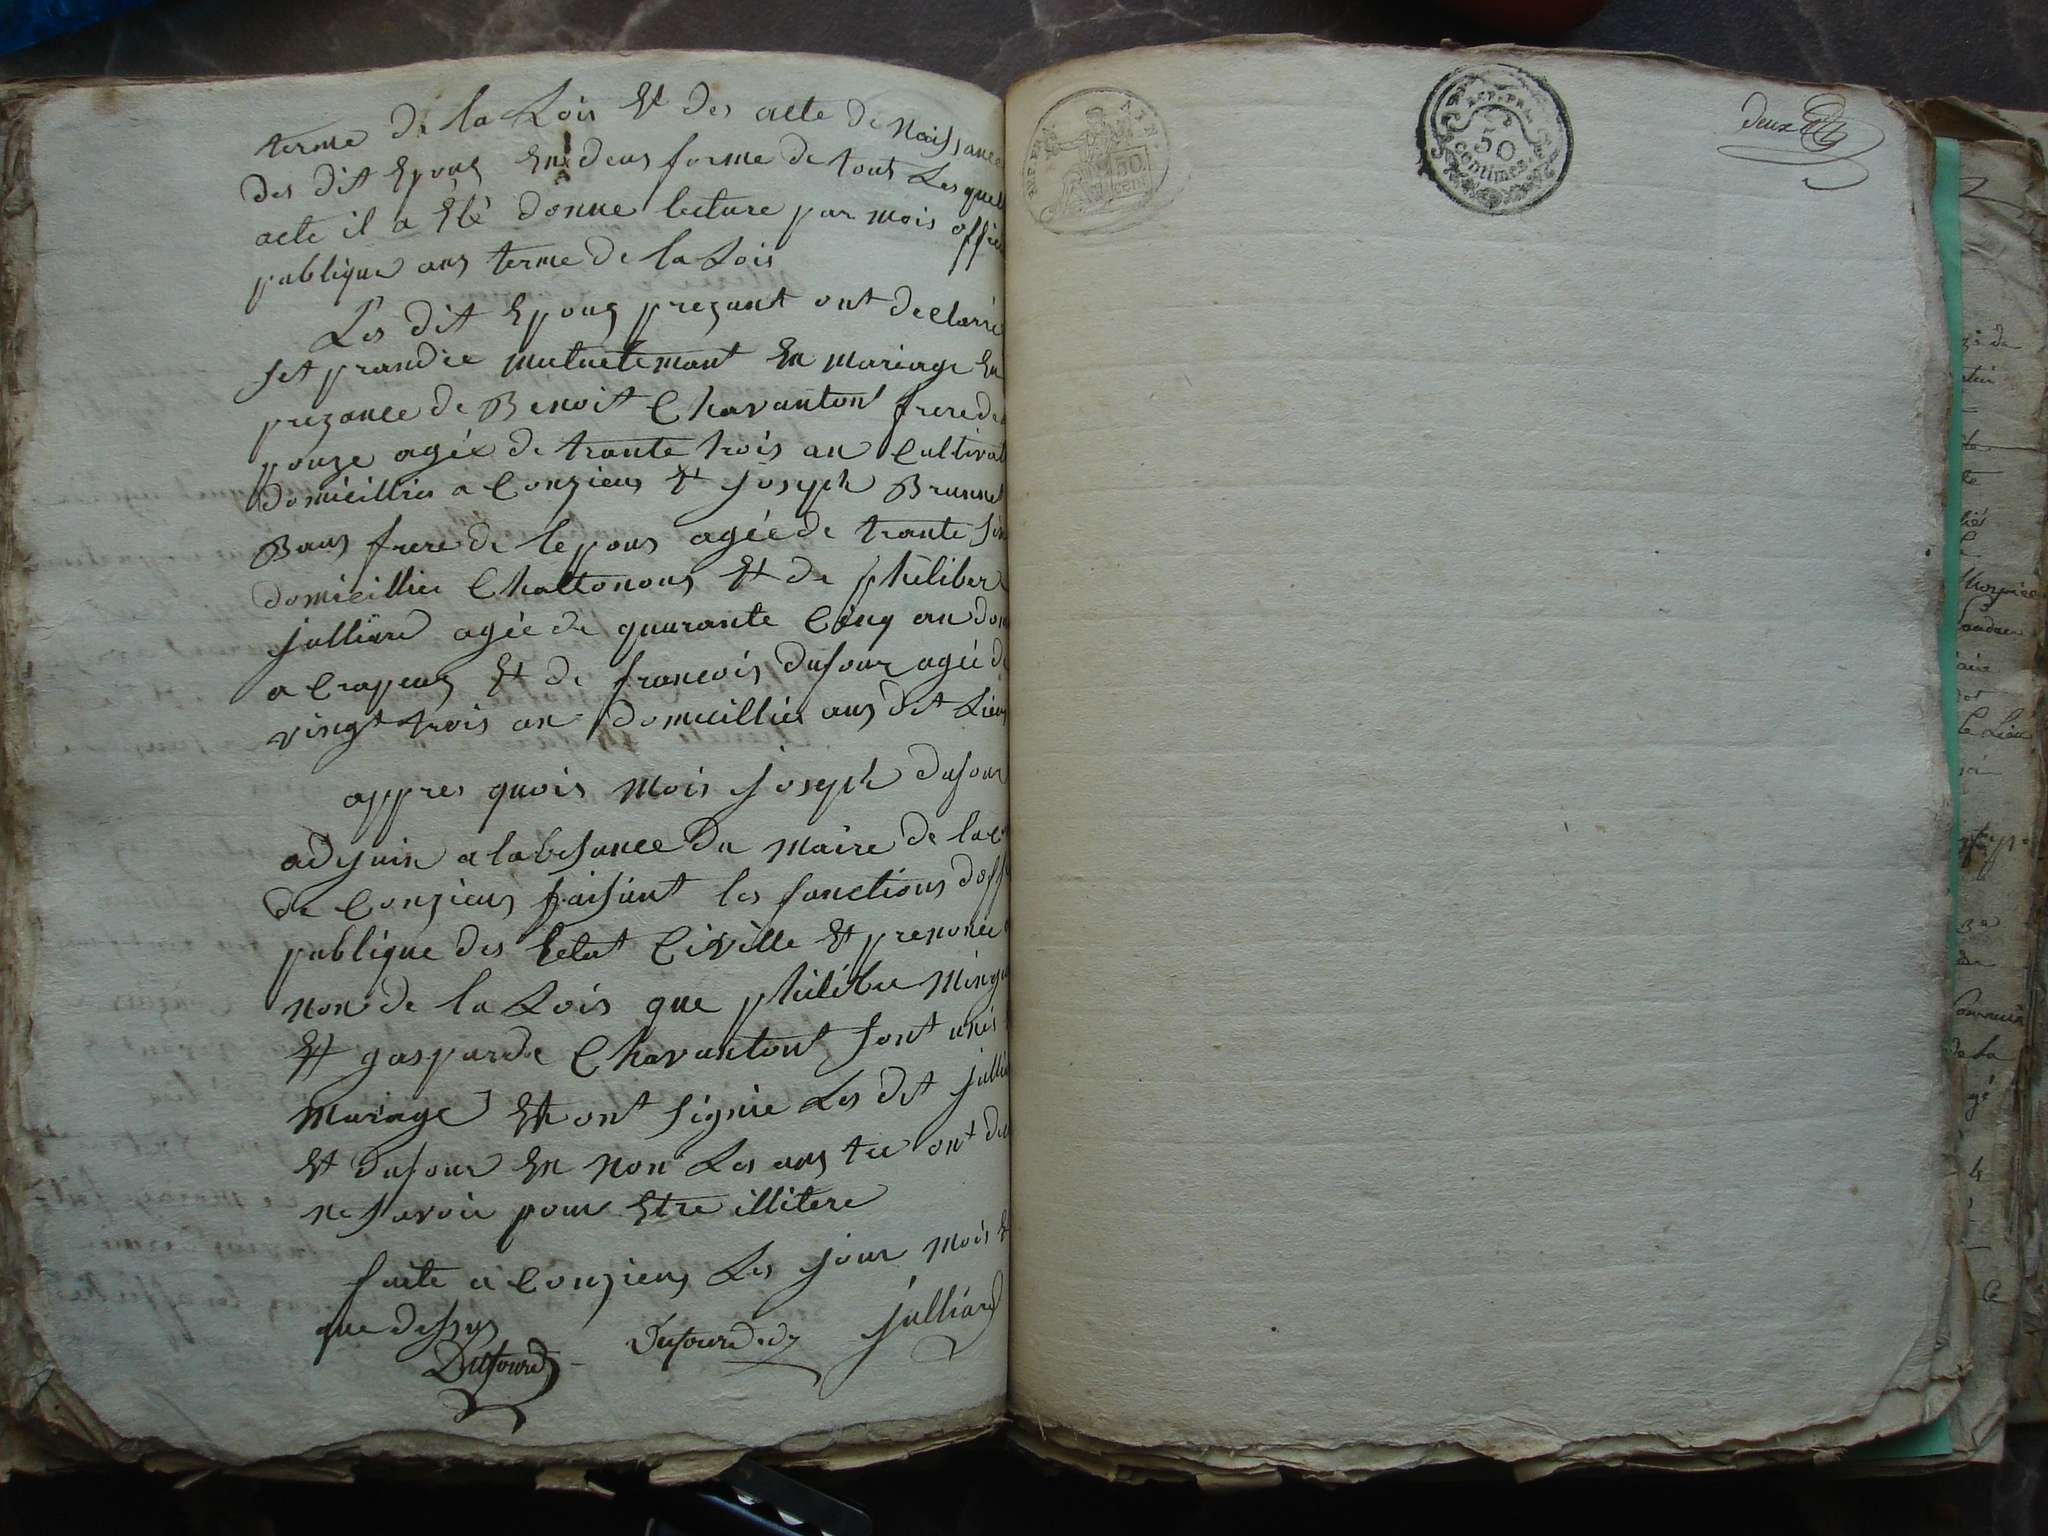 terme de la Lois Et des acte de Naissance
des dit Epoux En deux forme de tout Les quel
acte il a Eté donne lecture par mois offici
publique aux terme de la Lois
Les dit Epoux prezant ont declarré
set prandre mutuelemant En mariage En
prezance de Benoit Chavanton frere de
pouze agée de trante trois an Cultivat
domicillier a Conzieux Et Joseph Brunnet
Baux frere de lepoux agée de trante
domicillier Chattonoux Et de philiber
julliard agée de quarante Cinq an dom
a Crapeux Et de francois dufour agée de
vingt trois an domicillier aux dit Lieux
appres quois mois joseph dufour
adjoin a labsance du maire de la
de Conzieux faisant les fonctions doff
publique des Letat Civille Et prenonce
non de la Lois que philibe Mingu
Et gasparde Chavanton sont unis
Mariage Et ont signie Les dit julli
Et dufour En non Les aux tre ont
ne savoir pour Etre illitere
faite a Conzieux Les jour mois Et
que dessus
Dufour
Dufour adj
julliard
50
cent
50
centimes
deux